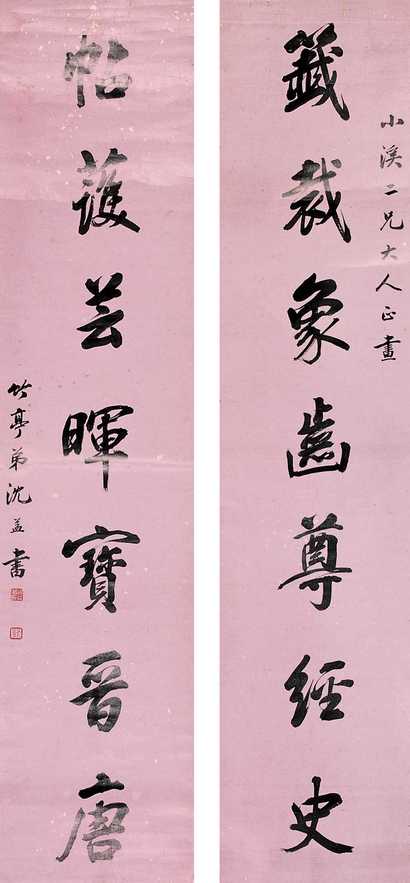 小溪二兄大人正畫
籤裁象齒尊經史
帖護芸暉寶晉唐
竹亭弟沈益書